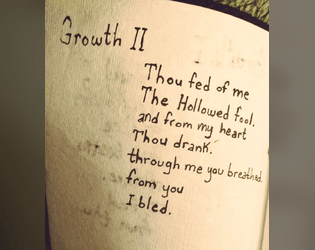 Growth II
Thou fed of me
The Hollowed fool.
and from my heart
Thou drank.
through me you breathed.
from you
I bled.